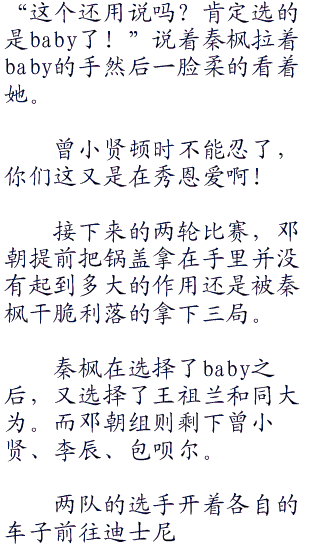 “这个还用说吗？肯定选的
是baby了！”说着秦枫拉着
baby的手然后一脸柔的看着
她。
曾小贤顿时不能忍了，
你们这又是在秀恩爱啊！
接下来的两轮比赛，邓
朝提前把锅盖拿在手里并没
有起到多大的作用还是被秦
枫干脆利落的拿下三局。
秦枫在选择了baby之
后，又选择了王祖兰和同大
为。而邓朝组则剩下曾小
贤、李辰、包呗尔。
两队的选手开着各自的
车子前往迪士尼